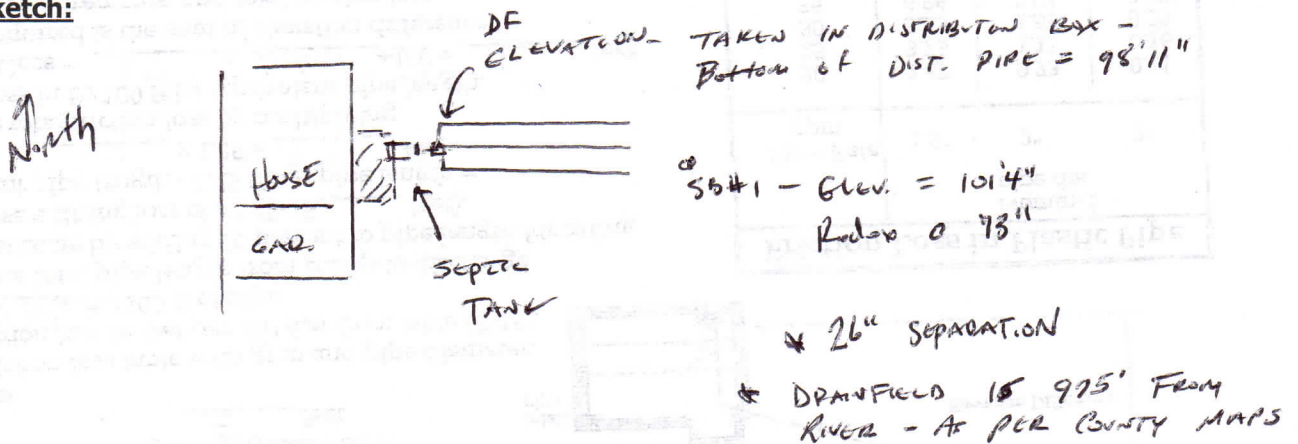 ketch:
DF
ELEVATION- TAKEN IN DISTRIBUTON BOX -
Bottom of DIST. PIPE = 98'11"
North
HOUSE
GAR
SEPTIC
TANK
SB#1 - ELEV. = 101'4"
Redox @ 73"
* 26" SEPARATION
* DRAINFIELD IS 975' FROM
RIVER - As PER COUNTY MAPS